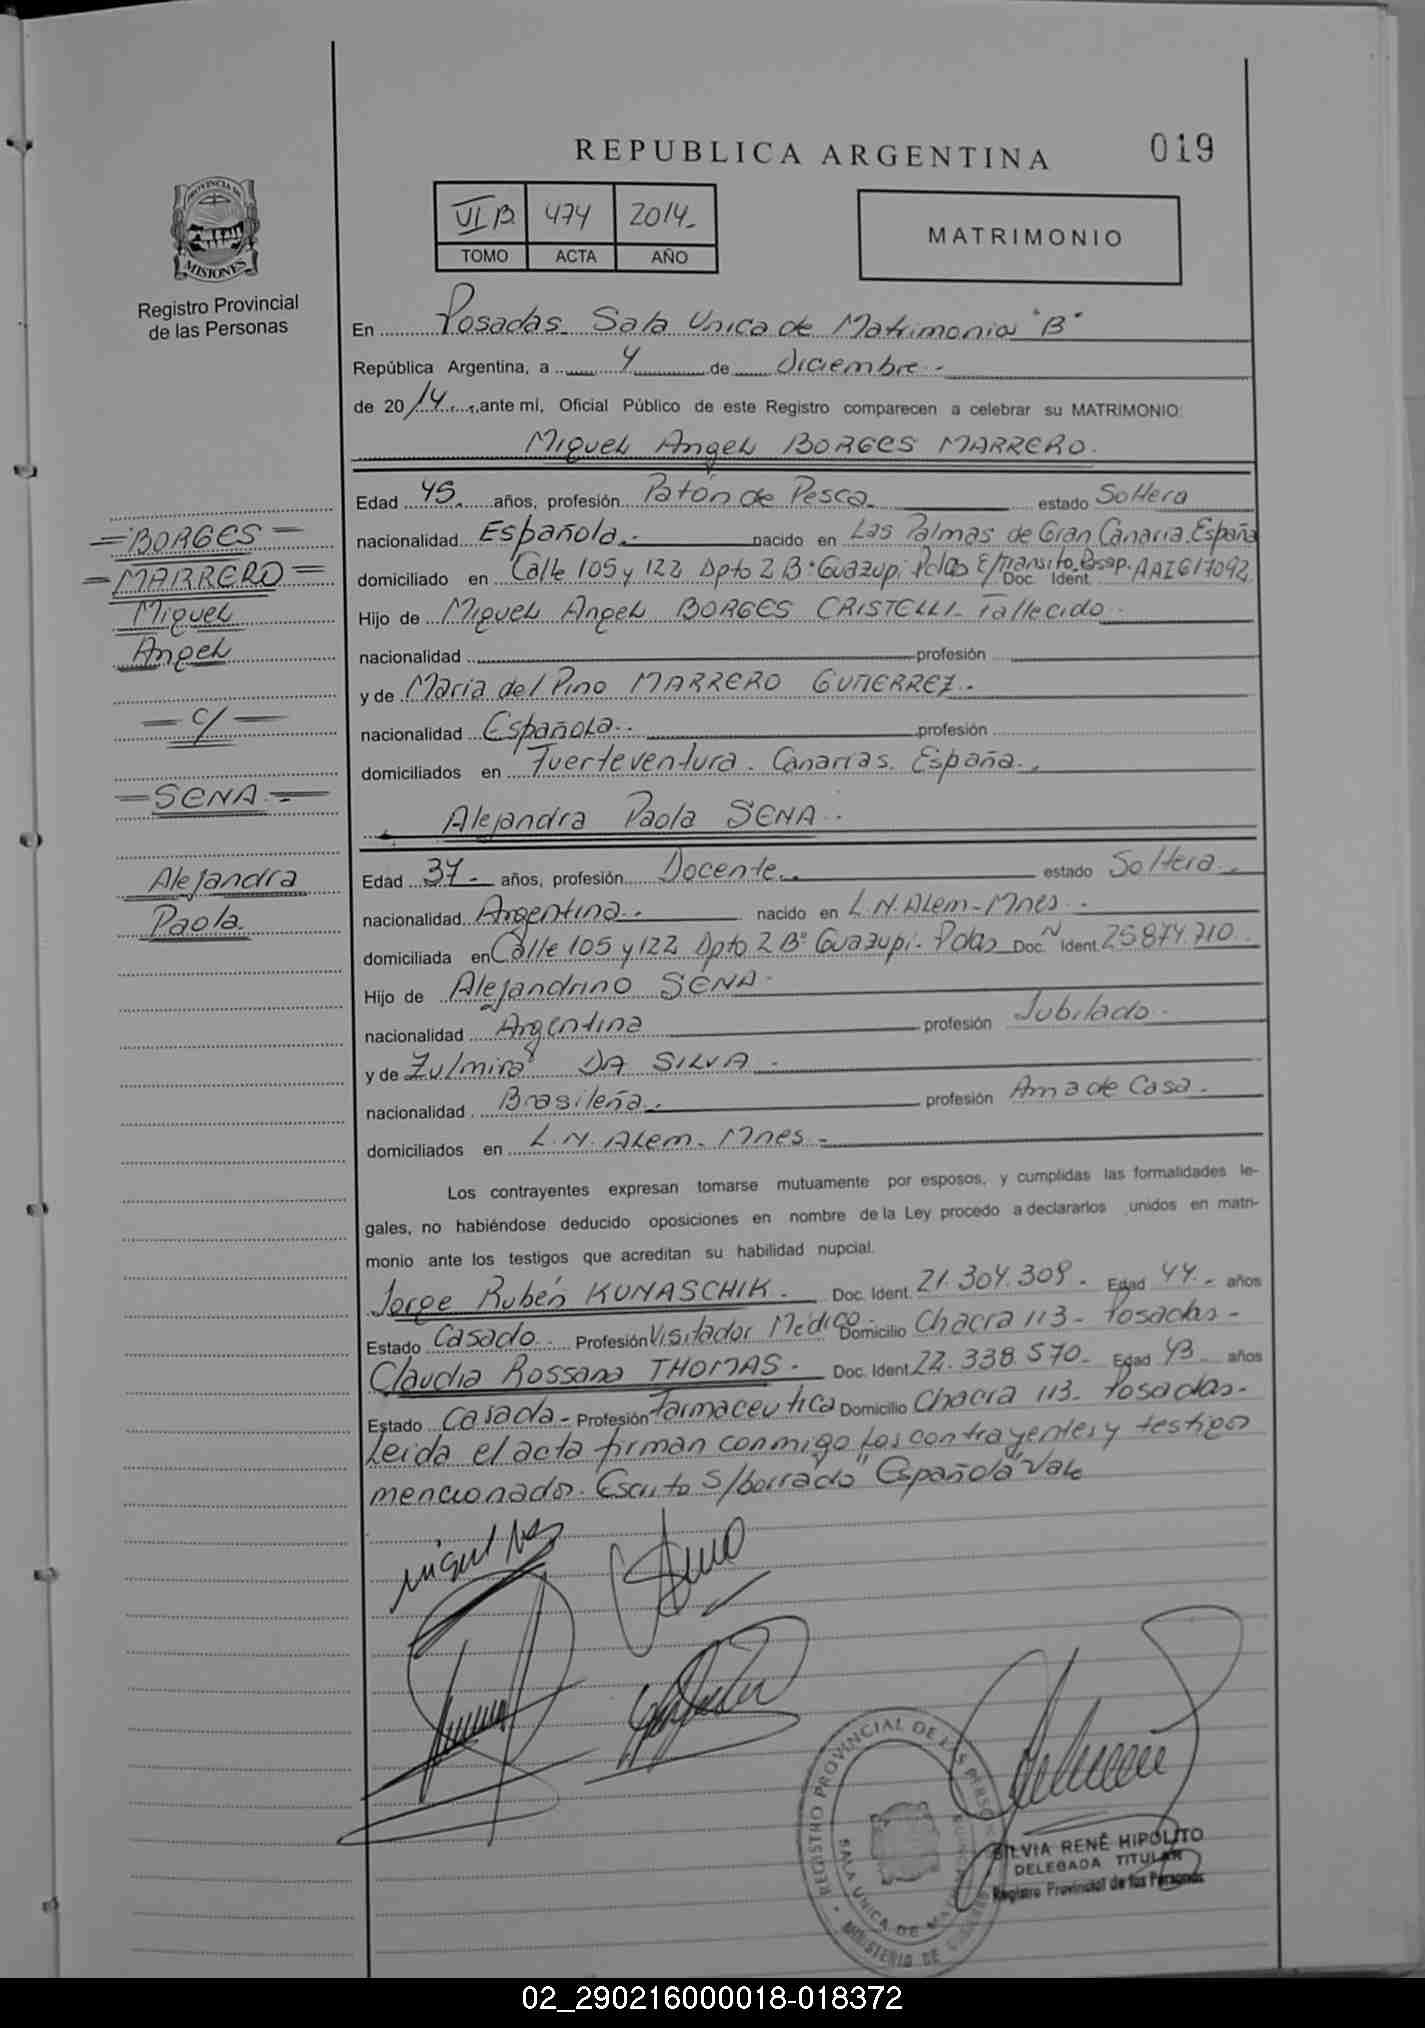 REPUBLICA ARGENTINA
019
PROVINCIA DE
MISIONES
Registro Provincial
de las Personas
VI B 474 2014.
TOMO ACTA AÑO
MATRIMONIO
En Posadas Sala Unica de Matrimonio "B"
República Argentina, a 4 de Diciembre.
de 2014, ante mí, Oficial Público de este Registro comparecen a celebrar su MATRIMONIO:
Miguel Angel BORGES MARRERO.
Edad 45. años, profesión Patón de Pesca estado Soltera
nacionalidad Española. nacido en Las Palmas de Gran Canaria. España
domiciliado en Calle 105 y 122 Dpto 2 Bº Guazupi Pdas E/transito. Pasap. Doc. Ident. AAI617092
Hijo de Miguel Angel BORGES CRISTELLI Fallecido.
nacionalidad profesión
y de Maria del Pino MARRERO GUTIERREZ.
nacionalidad Española. profesión
domiciliados en Fuerteventura. Canarias. España.
Alejandra Paola SENA.
Edad 37. años, profesión Docente. estado Soltera.
nacionalidad Argentina. nacido en L.N. Alem - Mnes.
domiciliada en Calle 105 y 122 Dpto 2 Bº Guazupi. Pdas Doc. Ident. 25.874.710.
Hijo de Alejandrino SENA.
nacionalidad Argentina profesión Jubilado.
y de Zulmira DA SILVA.
nacionalidad Brasileña. profesión Ama de Casa.
domiciliados en L.N. Alem - Mnes.
Los contrayentes expresan tomarse mutuamente por esposos, y cumplidas las formalidades le-
gales, no habiéndose deducido oposiciones en nombre de la Ley procedo a declararlos unidos en matri-
monio ante los testigos que acreditan su habilidad nupcial.
Jorge Rubén KUNASCHIK. Doc. Ident. 21.304.309. Edad 44. años
Estado Casado. Profesión Visitador Medico. Domicilio Chacra 113 - Posadas -
Claudia Rossana THOMAS. Doc. Ident. 22.338.570. Edad 43 años
Estado Casada - Profesión Farmaceutica Domicilio Chacra 113 - Posadas -
Leida el acta firman conmigo los contrayentes y testigos
mencionados. Escrito s/borrado "Española" Vale
= BORGES =
= MARRERO =
Miguel
Angel
- c/ -
= SENA =
Alejandra
Paola.
REGISTRO PROVINCIAL DE LAS PERSONAS
SALA UNICA DE
MINISTERIO DE
SILVIA RENÉ HIPOLITO
DELEGADA TITULAR
Registro Provincial de las Personas
02_290216000018-018372